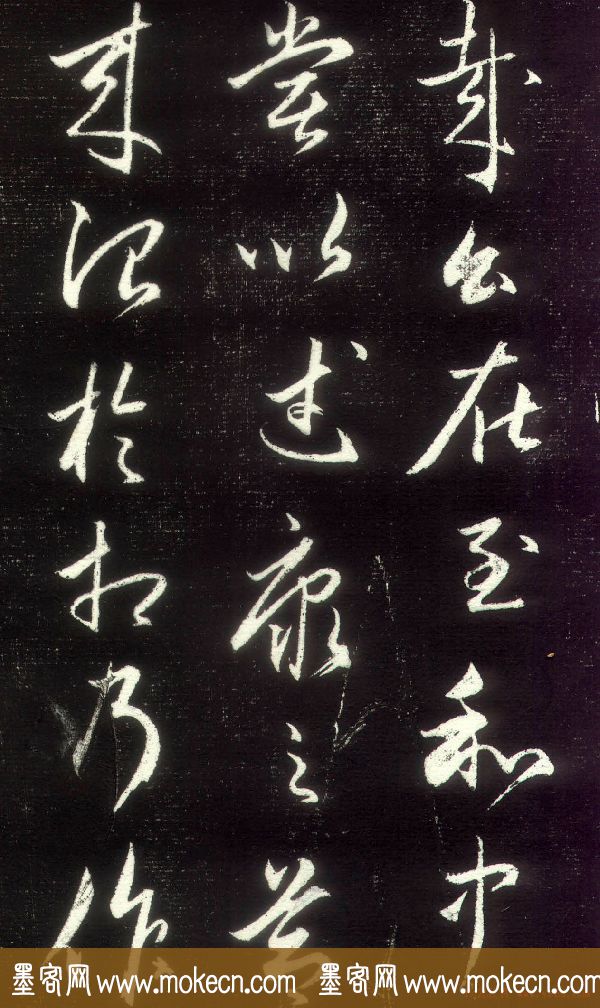 哉公在至和中
嘗以武康之節
来治於相乃作
墨客网 www.mokecn.com 墨客网 www.mokecn.com